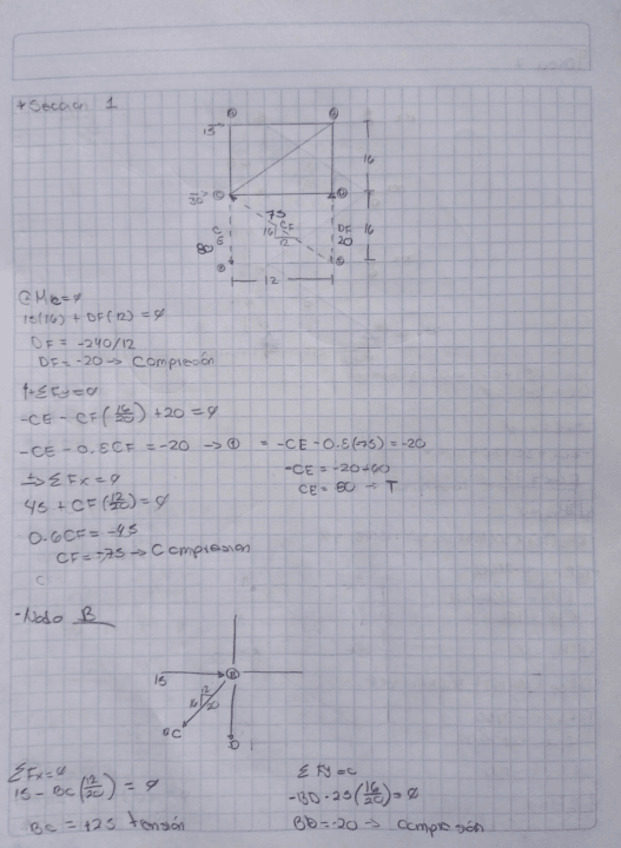 * Sección 1
15
16
30
75
CF
16
12
DF
20
16
80
12
@ Mc=0
15(16) + DF(12) = 0
DF = -240/12
DF = -20 → Compresión
↑+ΣFy=0
-CE - CF(16/20) + 20 = 0
-CE - 0.8CF = -20 → ① = -CE - 0.8(-75) = -20
-CE = -20-60
CE = 80 → T
+→ΣFx=0
45 + CF(12/20) = 0
0.6CF = -45
CF = -75 → Compresión
- Nodo B
B
15
12
16
20
BC
D
ΣFx=0
15 - BC(12/20) = 0
BC = +25 tensión
ΣFy=0
-BD - 25(16/20) = 0
BD = -20 → Compresión